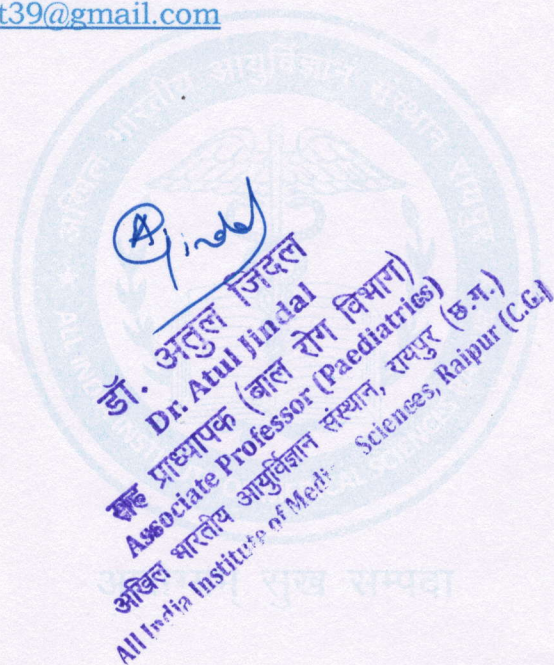 t39@gmail.com
AJindal
डॉ. अतुल जिंदल
Dr. Atul Jindal
सह प्राध्यापक (बाल रोग विभाग)
Associate Professor (Paediatrics)
अखिल भारतीय आयुर्विज्ञान संस्थान, रायपुर (छ.ग.)
All India Institute of Medi Sciences, Raipur (C.G.)
अखिल भारतीय आयुर्विज्ञान संस्थान रायपुर
सुख सम्पदा